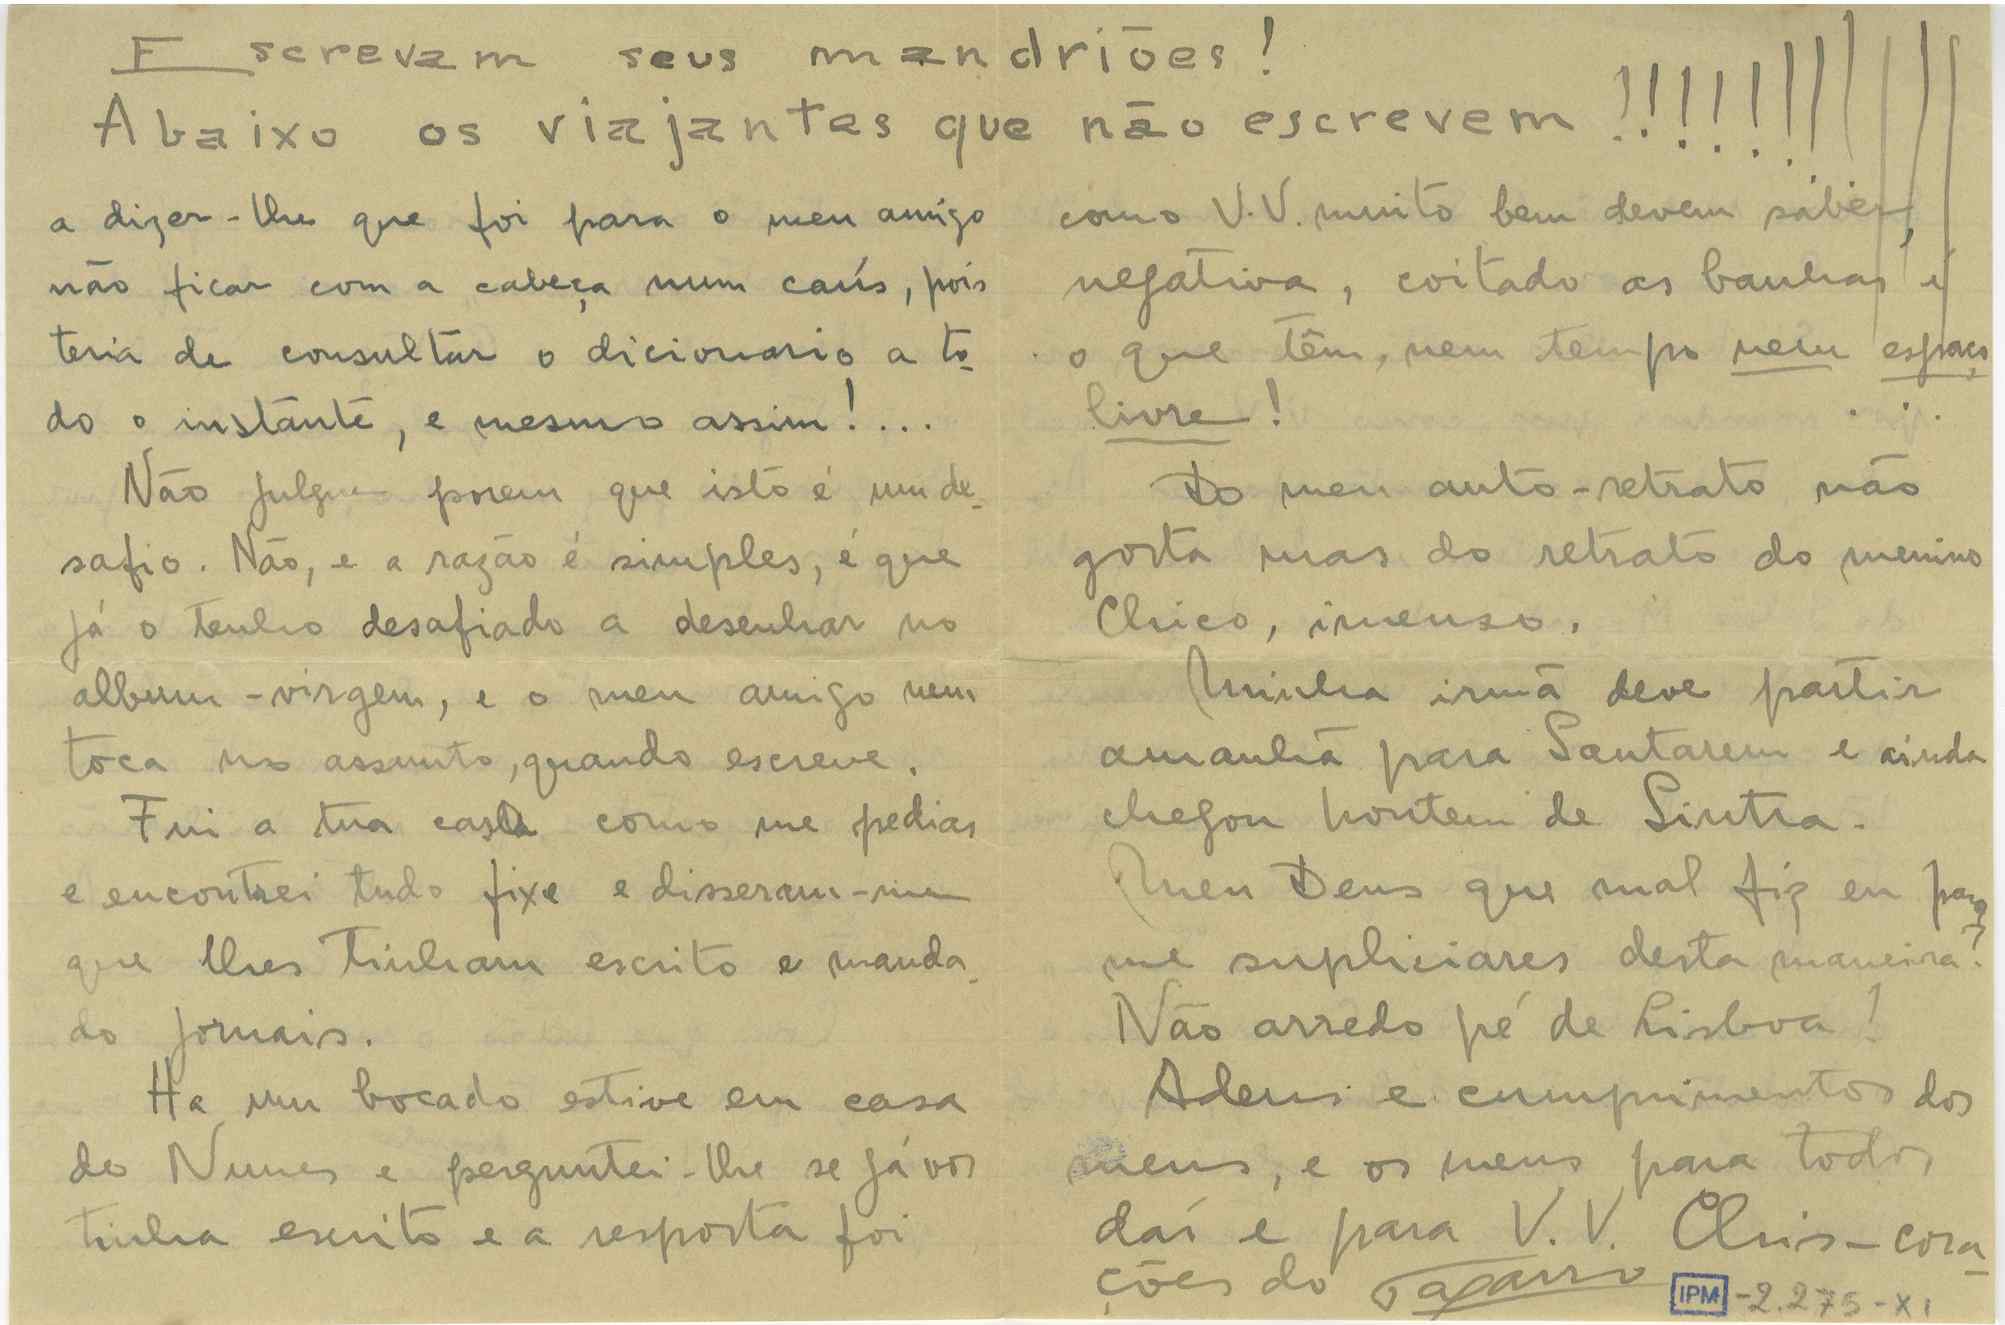 Escrevam seus mandriões!
Abaixo os viajantes que não escrevem !!!!!!!!!!!!
a dizer-lhe que foi para o meu amigo
não ficar com a cabeça num caús, pois
teria de consultar o dicionario a to-
do o instante, e mesmo assim!...
Não julgue porem que isto é um de-
safio. Não, e a razão é simples, é que
já o tenho desafiado a desenhar no
album-virgem, e o meu amigo nem
toca no assunto, quando escreve.
Fui a tua casa como me pedias
e encontrei tudo fixe e disseram-me
que lhes tinham escrito e manda-
do jornais.
Ha um bocado estive em casa
do Nunes e perguntei-lhe se já vos
tinha escrito e a resposta foi
como V.V. muito bem devem saber,
negativa, coitado as banhas é
o que têm, nem tempo nem espaço
livre! ...
Do meu auto-retrato não
gosta mas do retrato do menino
Chico, imenso.
Minha irmã deve partir
amanhã para Santarem e ainda
chegou hontem de Sintra.
Meu Deus que mal fiz eu para
me supliciares desta maneira?
Não arredo pé de Lisboa!
Adeus e cumprimentos dos
meus, e os meus para todos
daí e para V.V. Chis-cora-
ções do Tagarro
IPM -2.275-XI